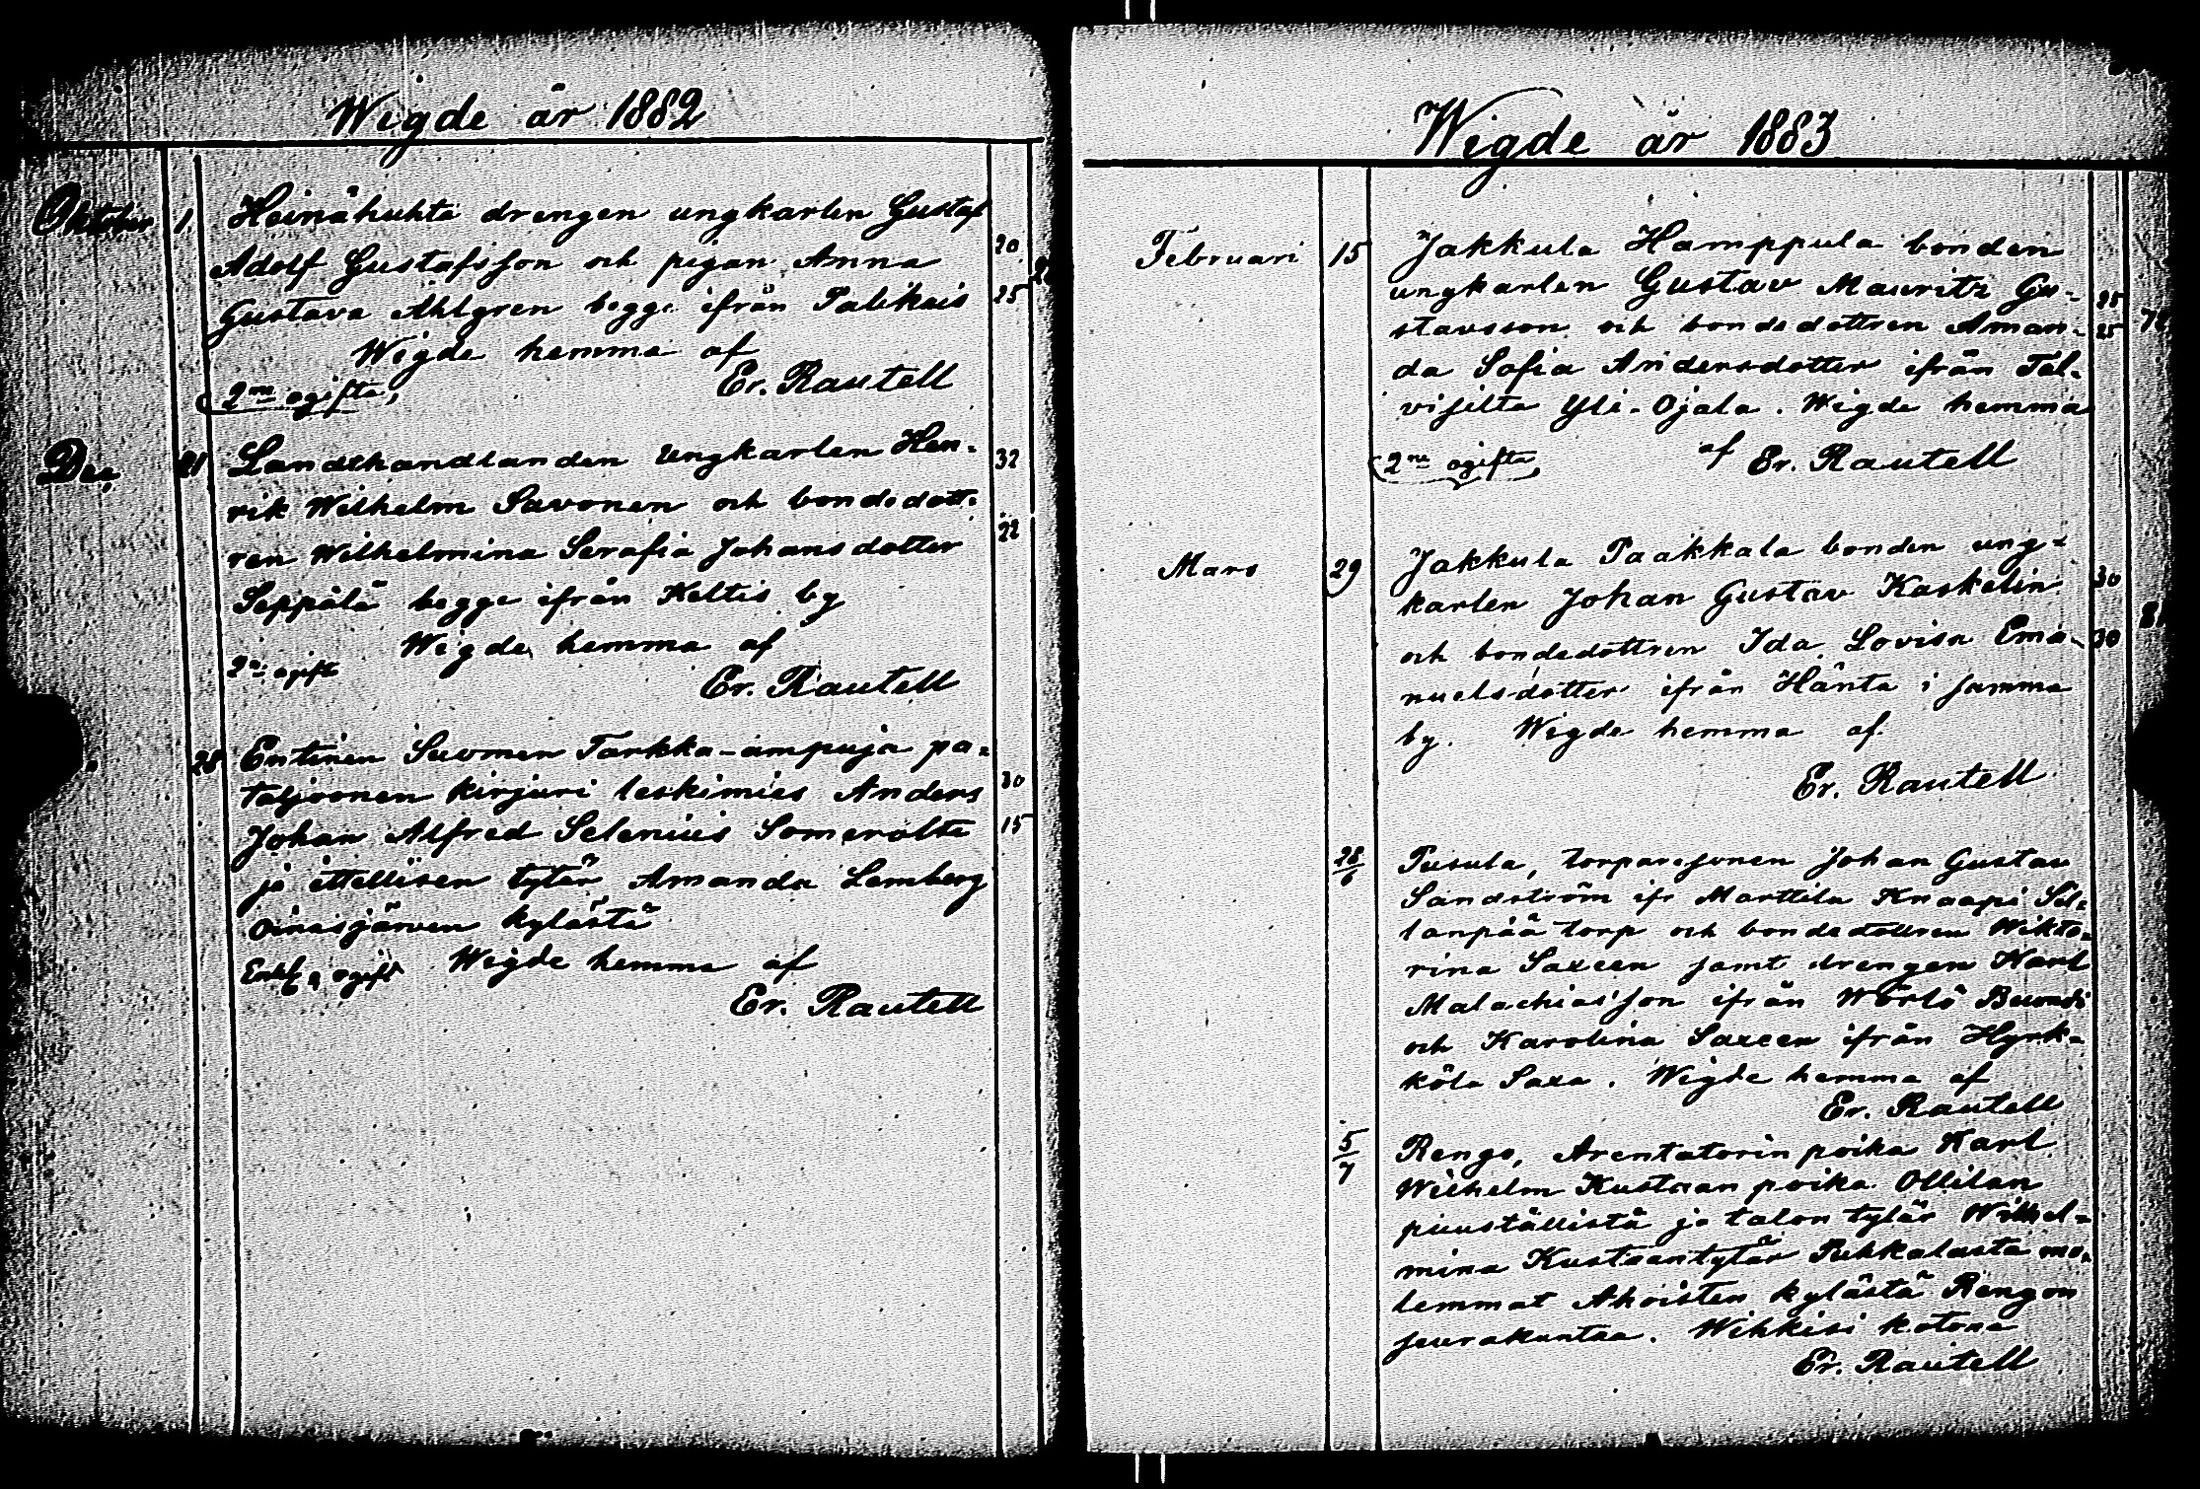 Wigde år 1882
Oktober 1. Heinähuhta drengen ungkarlen Gustaf
Adolf Gustafsson och pigan Anna 20
Gustava Ahlgren begge ifrån Palikais 25
Wigde hemma af
2ne ogifta, Er. Rautell
Dec. 21 Landthandlanden Ungkarlen Hen- 32
rik Wilhelm Savonen och bondedott-
ren Wilhelmina Serafia Johansdotter 22
Seppälä begge ifrån Keltis by
Wigde hemma af
2ne ogift
Er. Rautell
28 Entinen Suomen Tarkka-ampuja pa-
taljoonen kirjuri leskimies Anders 30
Johan Alfred Selenius Somerolta 15
ja ittellisen tytär Amanda Lemberg
Oinasjärven kylästä
Enkl. o ogift Wigde hemma af
Er. Rautell
Wigde år 1883
Februari 15 Jakkula Hamppula bonden
ungkarlen Gustav Mauritz Gu- 25
stavsson och bondedottren Aman- 25
da Sofia Andersdotter ifrån Tal-
visilta Yli-Ojala. Wigde hemma
2ne ogifta, af Er. Rautell
Mars 29 Jakkula Paakkala bonden ung-
karlen Johan Gustav Kaskelin 30
och bondedottren Ida Lovisa Ema- 30
nuelsdotter ifrån Hänta i samma
by. Wigde hemma af
Er. Rautell
28/6 Pusula, torparesonen Johan Gustav
Sandström ifr Marttila Knaapi Sil-
lanpää torp och bondedottren Wikto-
rina Saxeen samt drengen Karl
Malachiasson ifrån Wörlö
och Karolina Saxeen ifrån Hyrk-
kölä Saxa. Wigde hemma af
Er. Rautell
5/7 Rengo, Arentatorin poika Karl
Wilhelm Kustaan poika Ollilan
puuställistä ja talon tytär Wilhel-
mina Kustaantytär Puhkalasta mo-
lemmat Ahoisten kylästä Rengon
seurakuntaa. Wihkisi kotona
Er. Rautell